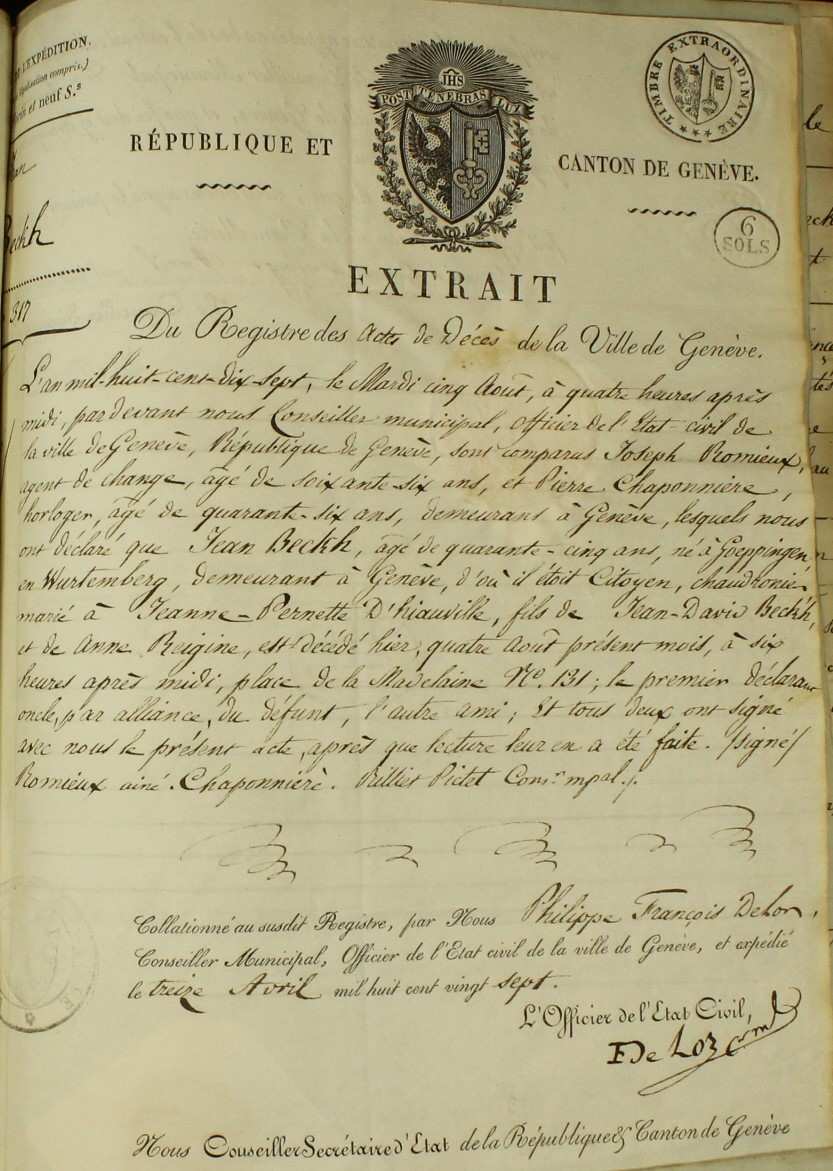 L'EXPÉDITION.
compris.)
et neuf S.s
Beckh
317
IHS
POST TENEBRAS LUX
TIMBRE EXTRAORDINAIRE
RÉPUBLIQUE ET
CANTON DE GENÈVE.
6
SOLS
EXTRAIT
Du Registre des Actes de Décès de la Ville de Genève.
L'an mil-huit-cent-dix-sept, le Mardi cinq Août, à quatre heures après
midi, pardevant nous Conseiller municipal, officier de l'Etat-civil de
la ville de Genève, République de Genève, sont comparus Joseph Romieux,
agent de change, âgé de soixante-six ans, et Pierre Chaponnière,
horloger, âgé de quarante-six ans, demeurans à Genève, lesquels nous
ont déclaré que Jean Beckh, âgé de quarante-cinq ans, né à Goeppingen,
en Wurtemberg, demeurant à Genève, d'où il étoit Citoyen, chaudronier,
marié à Jeanne-Pernette D'hiauville, fils de Jean-David Beckh,
et de Anne Reigine, est décédé hier, quatre Août présent mois, à six
heures après midi, place de la Madelaine No. 131; le premier déclarant
oncle, par alliance, du défunt, l'autre ami; Et tous deux ont signé
avec nous le présent acte, après que lecture leur en a été faite. /signé/
Romieux ainé. Chaponnière. Rilliet Pictet Cons.r mpal./.
Collationné au susdit Registre, par Nous Philippe François DeLor,
Conseiller Municipal, Officier de l'Etat civil de la ville de Genève, et expédié
le treize Avril mil huit cent vingt sept.
L'Officier de l'Etat Civil,
F De Lor
Nous Conseiller Secrétaire d'Etat de la République & Canton de Genève